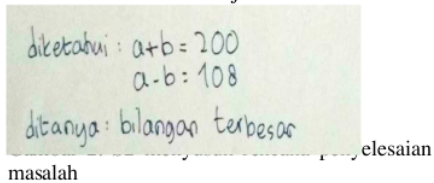 diketahui : a+b = 200
a-b : 108
ditanya : bilangan terbesar
elesaian
masalah